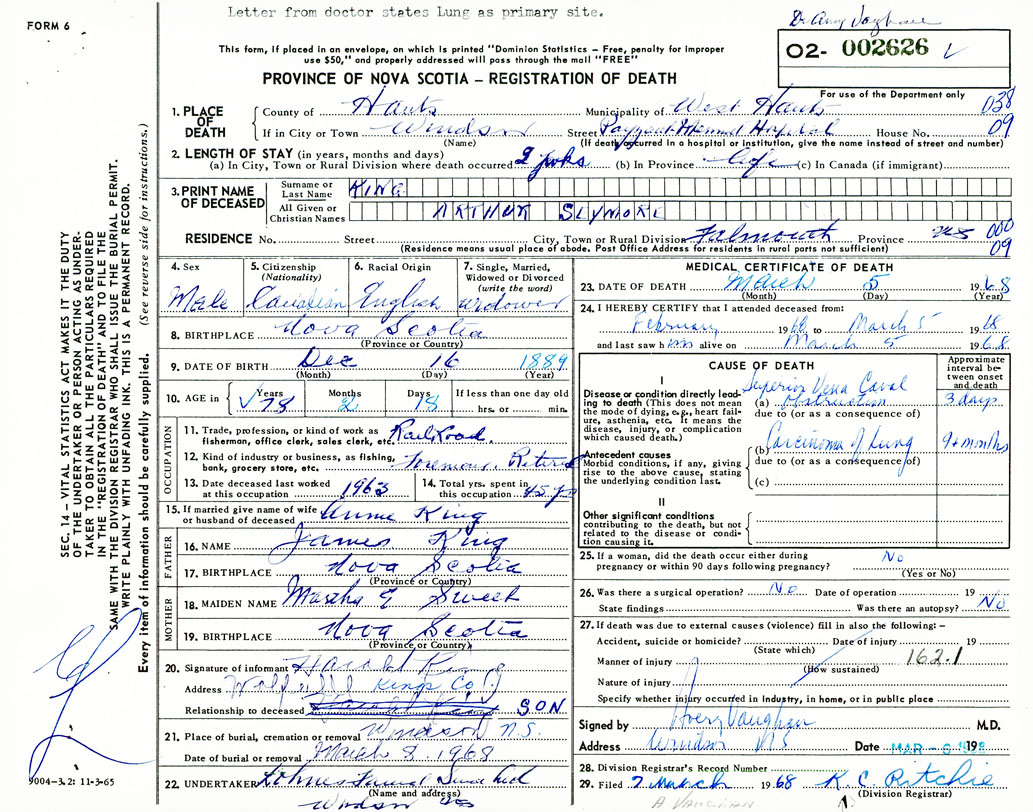 Letter from doctor states Lung as primary site.
FORM 6
This form, if placed in an envelope, on which is printed "Dominion Statistics – Free, penalty for improper
use $50," and properly addressed will pass through the mail "FREE"
O2- 002626
PROVINCE OF NOVA SCOTIA – REGISTRATION OF DEATH
For use of the Department only
1. PLACE OF DEATH
County of Hants Municipality of West Hants 038
If in City or Town Windsor Street Payzant Memorial Hospital House No. 09
(Name) (If death occurred in a hospital or institution, give the name instead of street and number)
2. LENGTH OF STAY (in years, months and days)
(a) In City, Town or Rural Division where death occurred 2 wks (b) In Province Life (c) In Canada (if immigrant)
3. PRINT NAME OF DECEASED
Surname or Last Name KING
All Given or Christian Names ARTHUR SEYMORE
RESIDENCE No. Street City, Town or Rural Division Falmouth Province NS 000
(Residence means usual place of abode. Post Office Address for residents in rural parts not sufficient) 09
4. Sex 5. Citizenship (Nationality) 6. Racial Origin 7. Single, Married, Widowed or Divorced (write the word)
Male Canadian English widower
8. BIRTHPLACE Nova Scotia
(Province or Country)
9. DATE OF BIRTH Dec 16 1889
(Month) (Day) (Year)
10. AGE in Years Months Days If less than one day old
78 2 18 hrs. or min.
OCCUPATION
11. Trade, profession, or kind of work as fisherman, office clerk, sales clerk, etc. Railroad.
12. Kind of industry or business, as fishing, bank, grocery store, etc. Foreman. Retired
13. Date deceased last worked at this occupation 1963
14. Total yrs. spent in this occupation 45 yrs
15. If married give name of wife or husband of deceased Annie King
FATHER
16. NAME James King
17. BIRTHPLACE Nova Scotia
(Province or Country)
MOTHER
18. MAIDEN NAME Martha E Sweet
19. BIRTHPLACE Nova Scotia
(Province or Country)
20. Signature of informant Harold King
Address Wolfville Kings Co
Relationship to deceased SON
21. Place of burial, cremation or removal Windsor N.S.
Date of burial or removal March 8, 1968
22. UNDERTAKER Lohnes Funeral Service Ltd
(Name and address)
Windsor NS
MEDICAL CERTIFICATE OF DEATH
23. DATE OF DEATH March 5 1968
(Month) (Day) (Year)
24. I HEREBY CERTIFY that I attended deceased from:
February 19 to March 5 1968
and last saw him alive on March 5 1968
CAUSE OF DEATH
Approximate interval between onset and death
I
Disease or condition directly leading to death (This does not mean the mode of dying, e.g., heart failure, asthenia, etc. It means the disease, injury, or complication which caused death.)
Superior Vena Caval
(a) Obstruction 3 days
due to (or as a consequence of)
Antecedent causes
Morbid conditions, if any, giving rise to the above cause, stating the underlying condition last.
(b) Carcinoma of Lung 9+ months
due to (or as a consequence of)
(c)
II
Other significant conditions
contributing to the death, but not related to the disease or condition causing it.
25. If a woman, did the death occur either during pregnancy or within 90 days following pregnancy? No
(Yes or No)
26. Was there a surgical operation? No Date of operation 19
State findings Was there an autopsy? No
27. If death was due to external causes (violence) fill in also the following: –
Accident, suicide or homicide? Date of injury 19
(State which)
Manner of injury 162.1
(How sustained)
Nature of injury
Specify whether injury occurred in industry, in home, or in public place
Signed by Avery Vaughan M.D.
Address Windsor NS Date MAR - 6 1968
28. Division Registrar's Record Number
29. Filed 7 March 1968 K. C. Ritchie
(Division Registrar)
A VAUGHAN
SEC. 14 – VITAL STATISTICS ACT MAKES IT THE DUTY
OF THE UNDERTAKER OR PERSON ACTING AS UNDER-
TAKER TO OBTAIN ALL THE PARTICULARS REQUIRED
IN THE "REGISTRATION OF DEATH" AND TO FILE THE
SAME WITH THE DIVISION REGISTRAR WHO SHALL ISSUE THE BURIAL PERMIT.
WRITE PLAINLY WITH UNFADING INK. THIS IS A PERMANENT RECORD.
Every item of information should be carefully supplied. (See reverse side for instructions.)
9004-3.2: 11-3-65